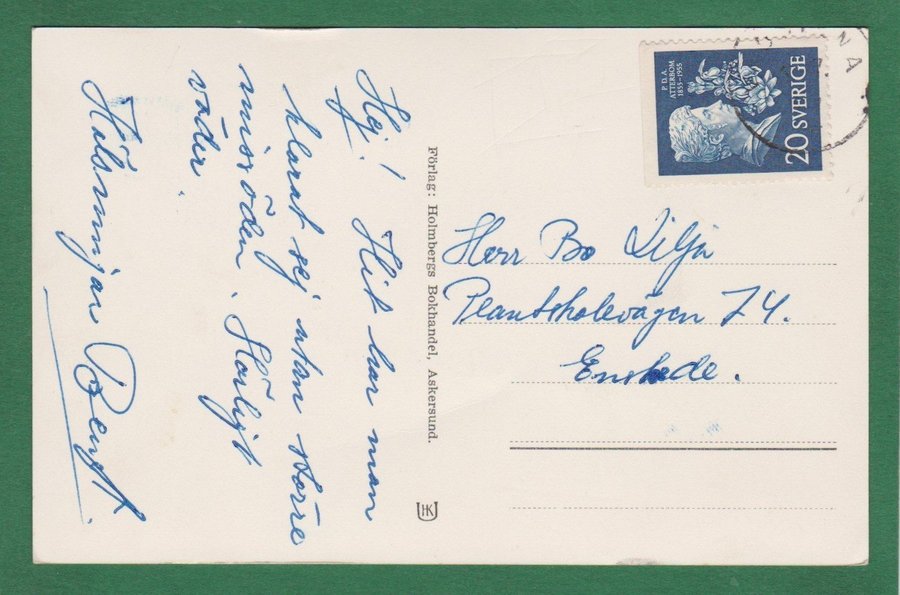 Hej! Hit har man
klarat sej utan större
missöden. Härligt
väder.
Hälsningar Bengt.
Förlag: Holmbergs Bokhandel, Askersund.
HK
P.D.A.
ATTERBOM
1855–1955
20 SVERIGE
Herr Bo Lilja
Plantskolevägen 74.
Enskede.